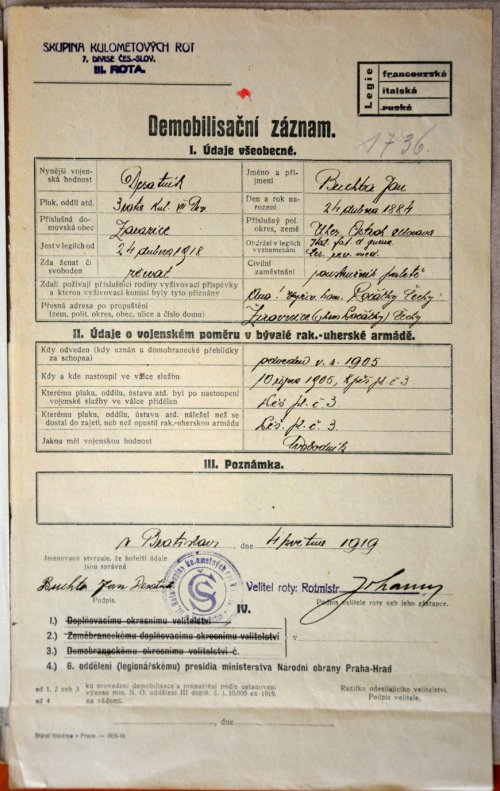 SKUPINA KULOMETOVÝCH ROT
7. DIVISE ČES.-SLOV.
III. ROTA.
Legie
francouzská
italská
ruská
1736.
Demobilisační záznam.
I. Údaje všeobecné.
Nynější vojenská hodnost
Desátník
Jméno a příjmení
Buchta Jan
Pluk, oddíl atd.
3 rota kul. VII
Den a rok narození
24 dubna 1884
Příslušná domovská obec
Žirovnice
Příslušný pol. okres, země
Jest v legiích od
24 dubna 1918
Obdržel v legiích vyznamenání
Zda ženat či svoboden
ženat
Civilní zaměstnání
Zdali požívají příslušníci rodiny vyživovací příspěvky
a kterou vyživovací komisí byly tito přiznány
Ano! Vyživ. kom. Počátky Čechy
Přesná adresa po propuštění
(zem, polit. okres, obec, ulice a číslo domu)
Žirovnice (okres Počátky) Čechy
II. Údaje o vojenském poměru v bývalé rak.-uherské armádě.
Kdy odveden (kdy uznán u domobranecké přehlídky
za schopna)
odveden v r. 1905
Kdy a kde nastoupil ve válce službu
10 října 1905, pl. č 3
Kterému pluku, oddílu, ústavu atd. byl po nastoupení
služby ve válce přidělen
pl. č. 3.
Kterému pluku, oddílu, ústavu atd. náležel než se
dostal do zajetí, neb než opustil rak.-uherskou armádu
pl. č. 3.
Jakou měl vojenskou hodnost
Svobodník
III. Poznámka.
v Bratislavě, dne 4 května 1919
Jmenovaný stvrzuje, že hořejší údaje
jsou správné
Buchta Jan Desátník
Podpis.
ČS
Velitel roty: Rotmistr
Podpis velitele roty neb jeho zástupce.
IV.
1.) Doplňovacímu okresnímu velitelství
2.) Zeměbraneckému doplňovacímu okresnímu velitelství
v
3.) Domobraneckému okresnímu velitelství č.
4.) 6. oddělení (legionářskému) presidia ministerstva Národní obrany Praha-Hrad
ad 1, 2 neb 3 ku provedení demobilisace a propuštění podle ustanovení
výnosu min. N. O. oddělení III dopln. č. j. 10.000 ex 1919.
ad 4 na vědomí.
Razítko odesílajícího velitelství.
Podpis velitele.
, dne
Státní tiskárna v Praze. — 1913-19.